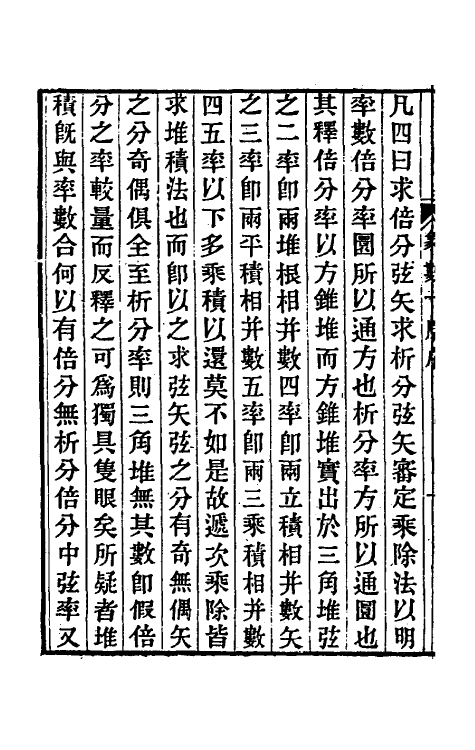 凡四曰求倍分弦矢求析分弦矢審定乘除法以明
率數倍分率圜所以通方也析分率方所以通圜也
其釋倍分率以方錐堆而方錐堆實出於三角堆弦
之二率卽兩堆根相并數四率卽兩立積相并數矢
之三率卽兩平積相并數五率卽兩三乘積相并數
四五率以下多乘積以還莫不如是故遞次乘除皆
求堆積法也而卽以之求弦矢弦之分有奇無偶矢
之分奇偶俱全至析分率則三角堆無其數卽假倍
分之率較量而反釋之可爲獨具隻眼矣所疑者堆
積旣與率數合何以有倍分無析分倍分中弦率又